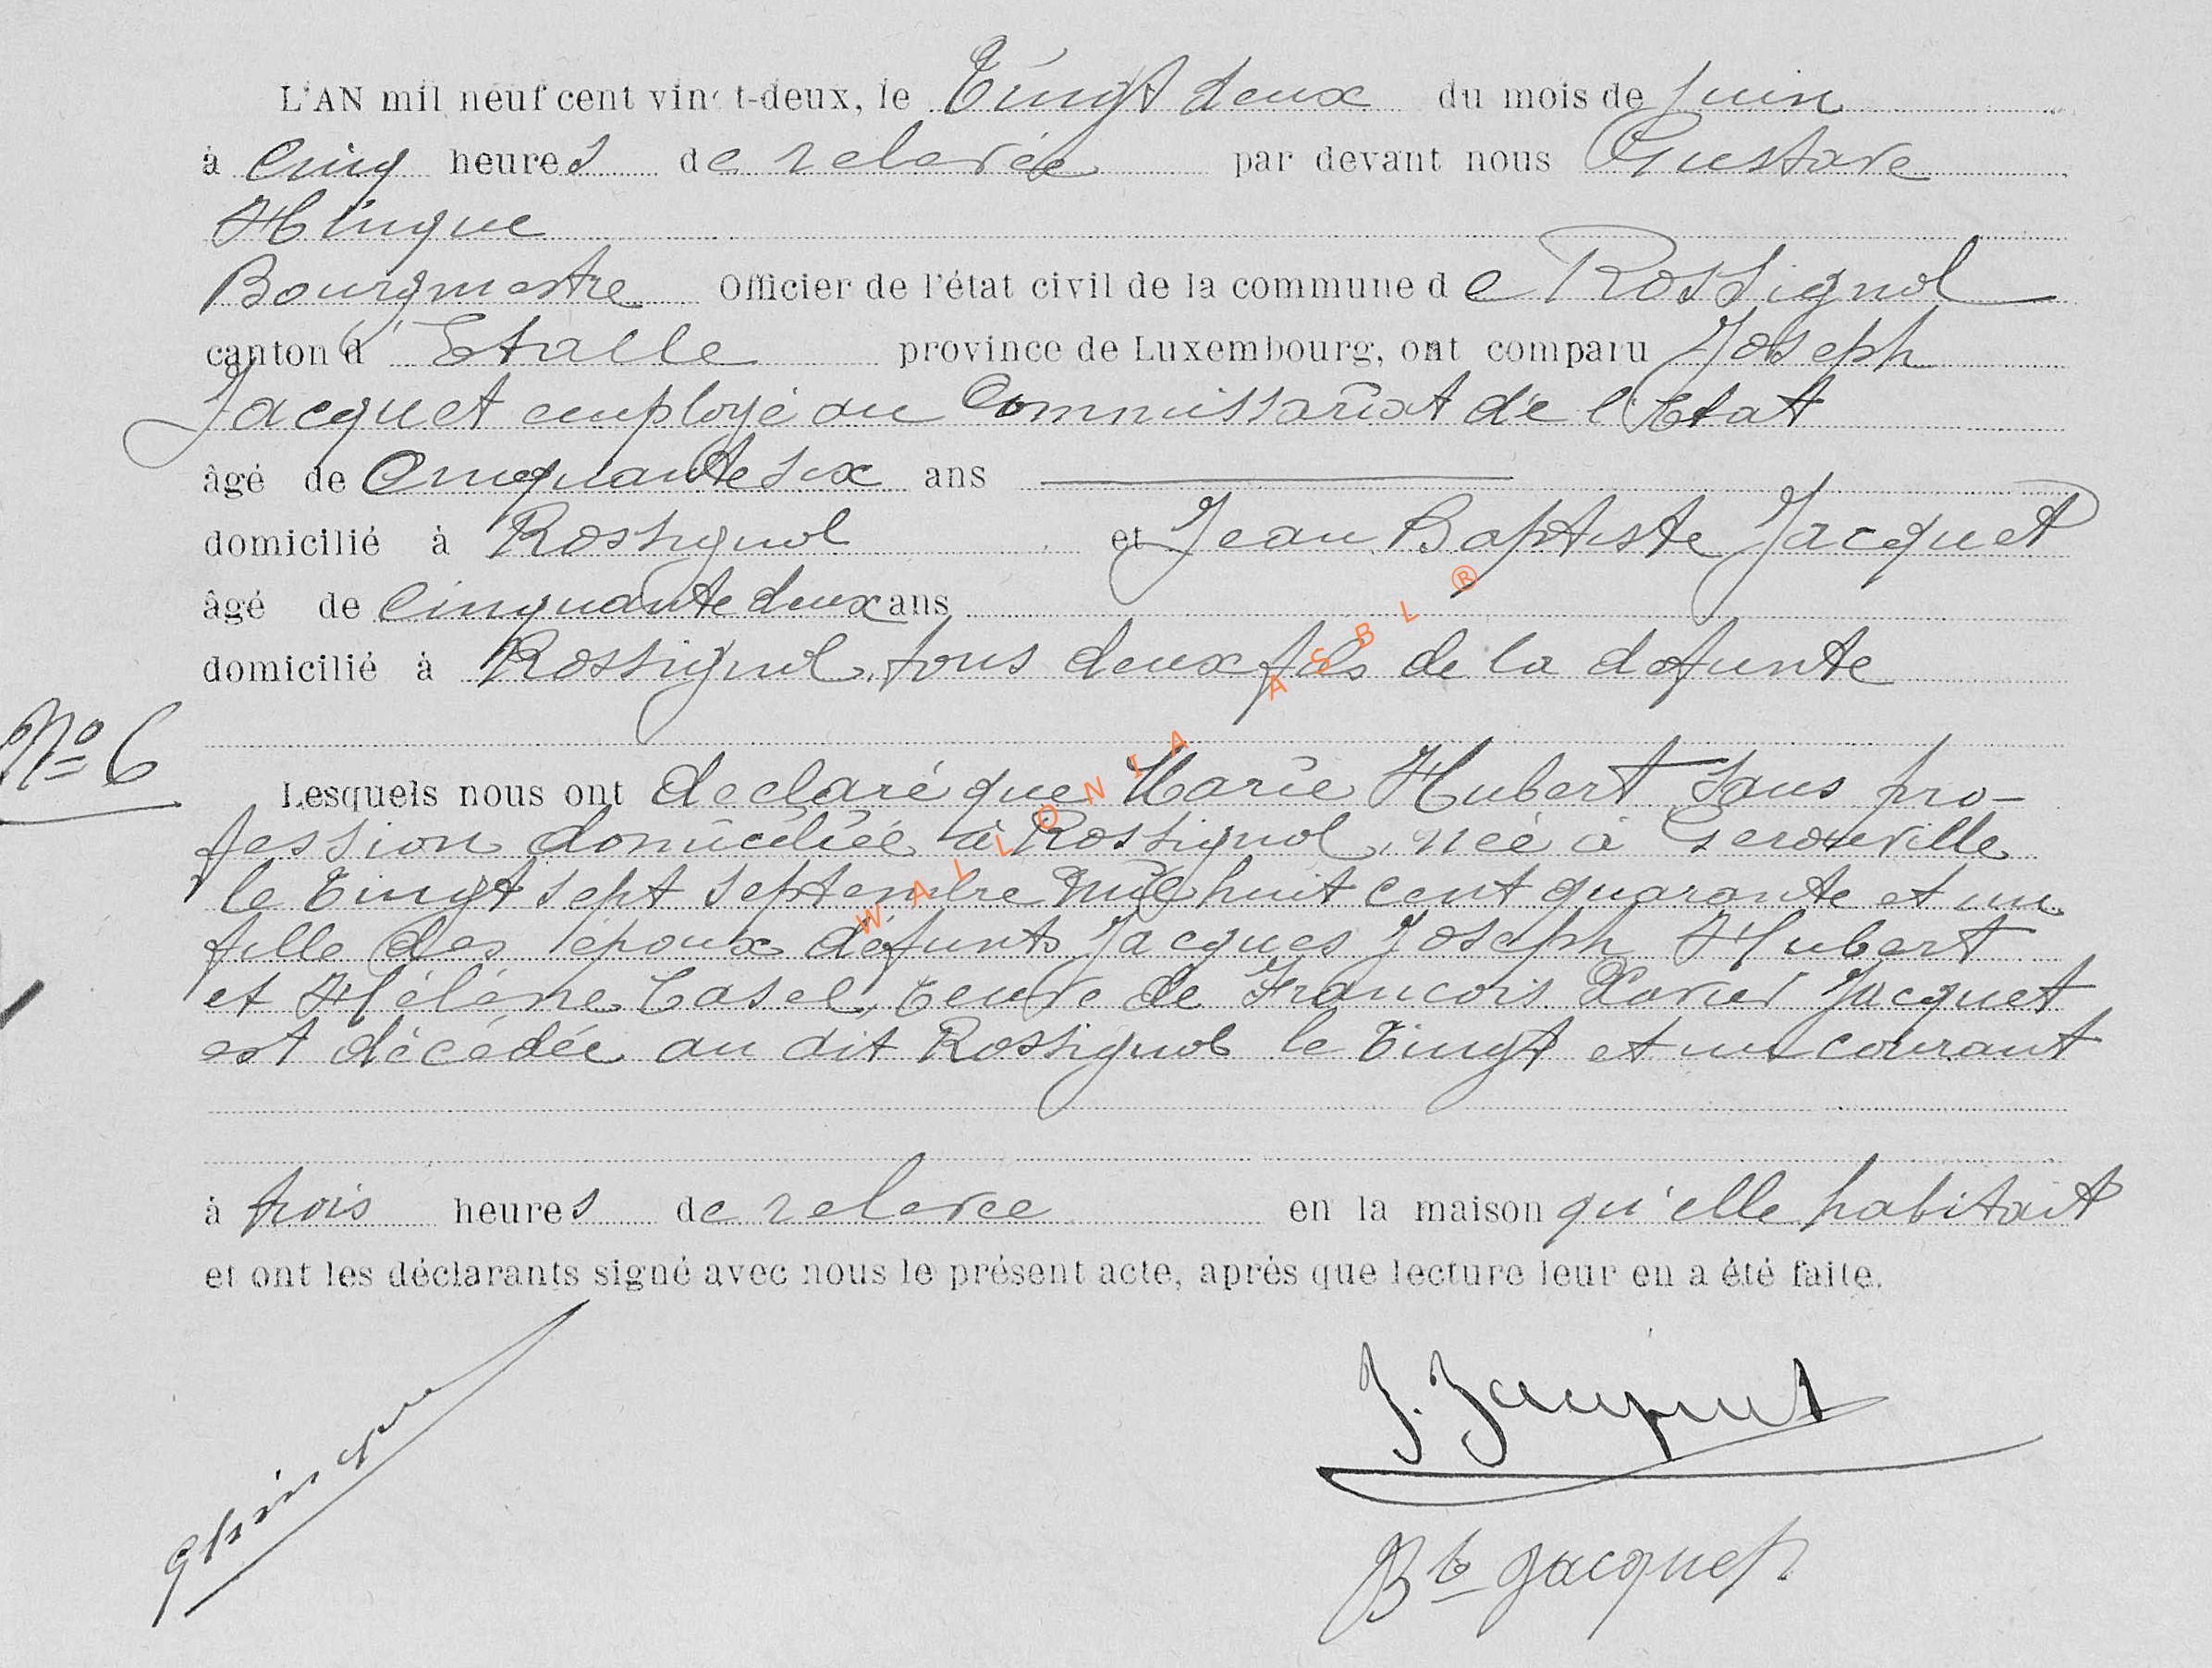 L'AN mil neuf cent vingt-deux, le Vingt deux du mois de Juin
à Cinq heures de relevée par devant nous Gustave
Hinque
Bourgmestre Officier de l'état civil de la commune de Rossignol
canton d'Etalle province de Luxembourg, ont comparu Joseph
Jacquet employé au Commissariat de l'Etat
âgé de Cinquante six ans
domicilié à Rossignol et Jean Baptiste Jacquet
âgé de Cinquante deux ans
domicilié à Rossignol, tous deux fils de la defunte
No 6
Lesquels nous ont declaré que Marie Hubert sans pro-
fession domiciliée à Rossignol, née à Gerouville
le Vingt sept septembre mil huit cent quarante et un
fille des époux défunts Jacques Joseph Hubert
et Hélène Casel, Veuve de Francois Xavier Jacquet
est décédée au dit Rossignol le Vingt et un courant
à trois heures de relevee en la maison qu'elle habitait
et ont les déclarants signé avec nous le présent acte, après que lecture leur en a été faite.
J. Jacquet
Bte Jacquet
WALLONIA ASBL ®